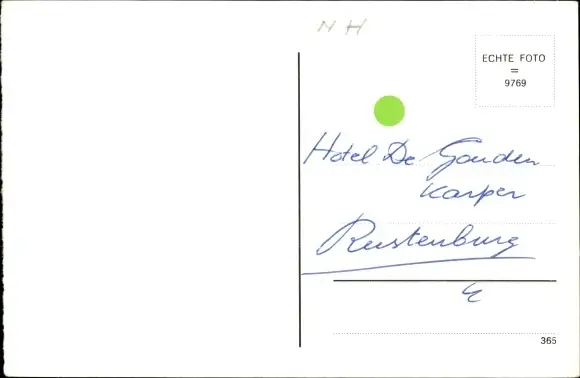 N H
ECHTE FOTO
=
9769
Hotel De Gouden
Karper
Rustenburg
365